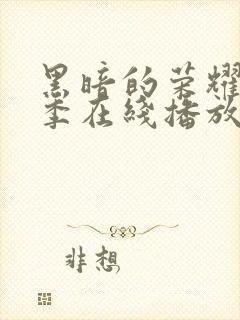 黑暗的荣耀
季在线播放
非想